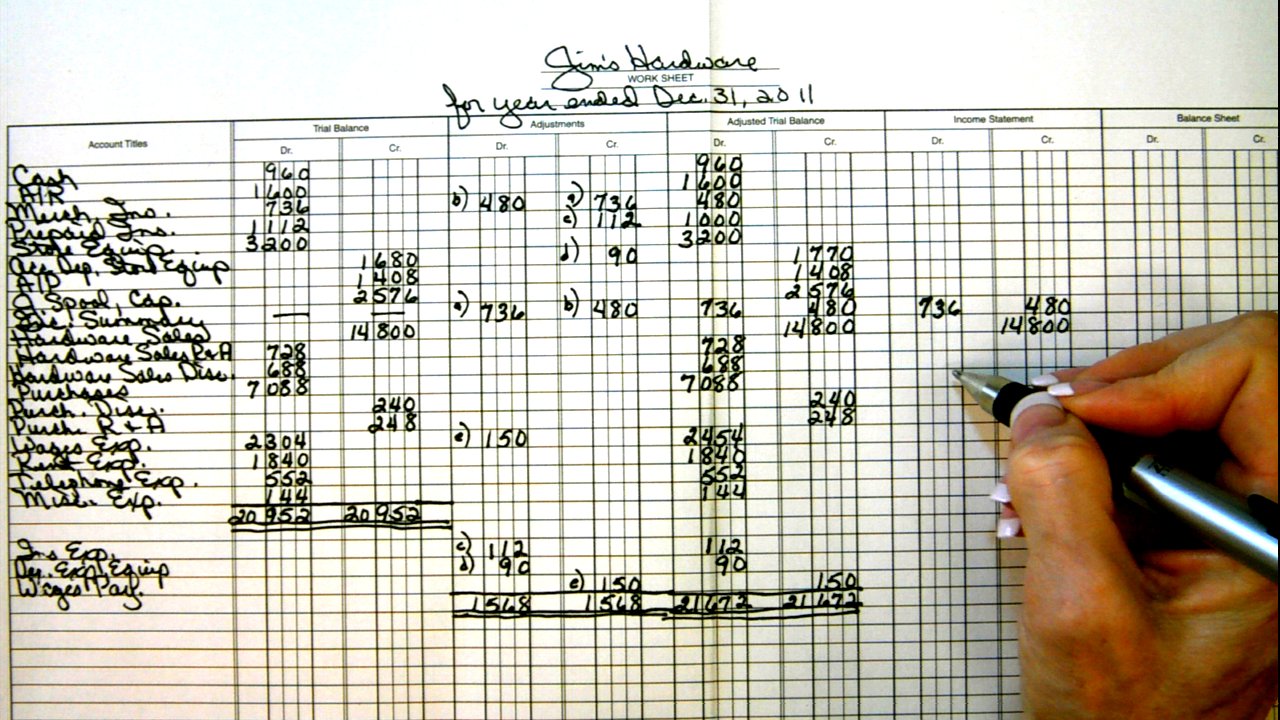 Jim's Hardware
WORK SHEET
for year ended Dec. 31, 2011
Account Titles Trial Balance Adjustments Adjusted Trial Balance Income Statement Balance Sheet
Dr. Cr. Dr. Cr. Dr. Cr. Dr. Cr. Dr. Cr.
Cash 960 960
A/R 1600 1600
Merch. Inv. 736 b) 480 a) 736 480
Prepaid Ins. 1112 c) 112 1000
Store Equip. 3200 3200
Acc. Dep. Store Equip 1680 d) 90 1770
A/P 1408 1408
Spool, Cap. 2576 2576
Inc. Summary — — a) 736 b) 480 736 480 736 480
Hardware Sales 14800 14800 14800
Hardware Sales R+A 728 728
Hardware Sales Disc. 688 688
Purchases 7088 7088
Purch. Disc. 240 240
Purch. R + A 248 248
Wages Exp. 2304 e) 150 2454
Rent Exp. 1840 1840
Telephone Exp. 552 552
Misc. Exp. 144 144
20952 20952
Ins Exp. c) 112 112
Dep. Exp. Equip d) 90 90
Wages Pay. e) 150 150
1568 1568 21672 21672